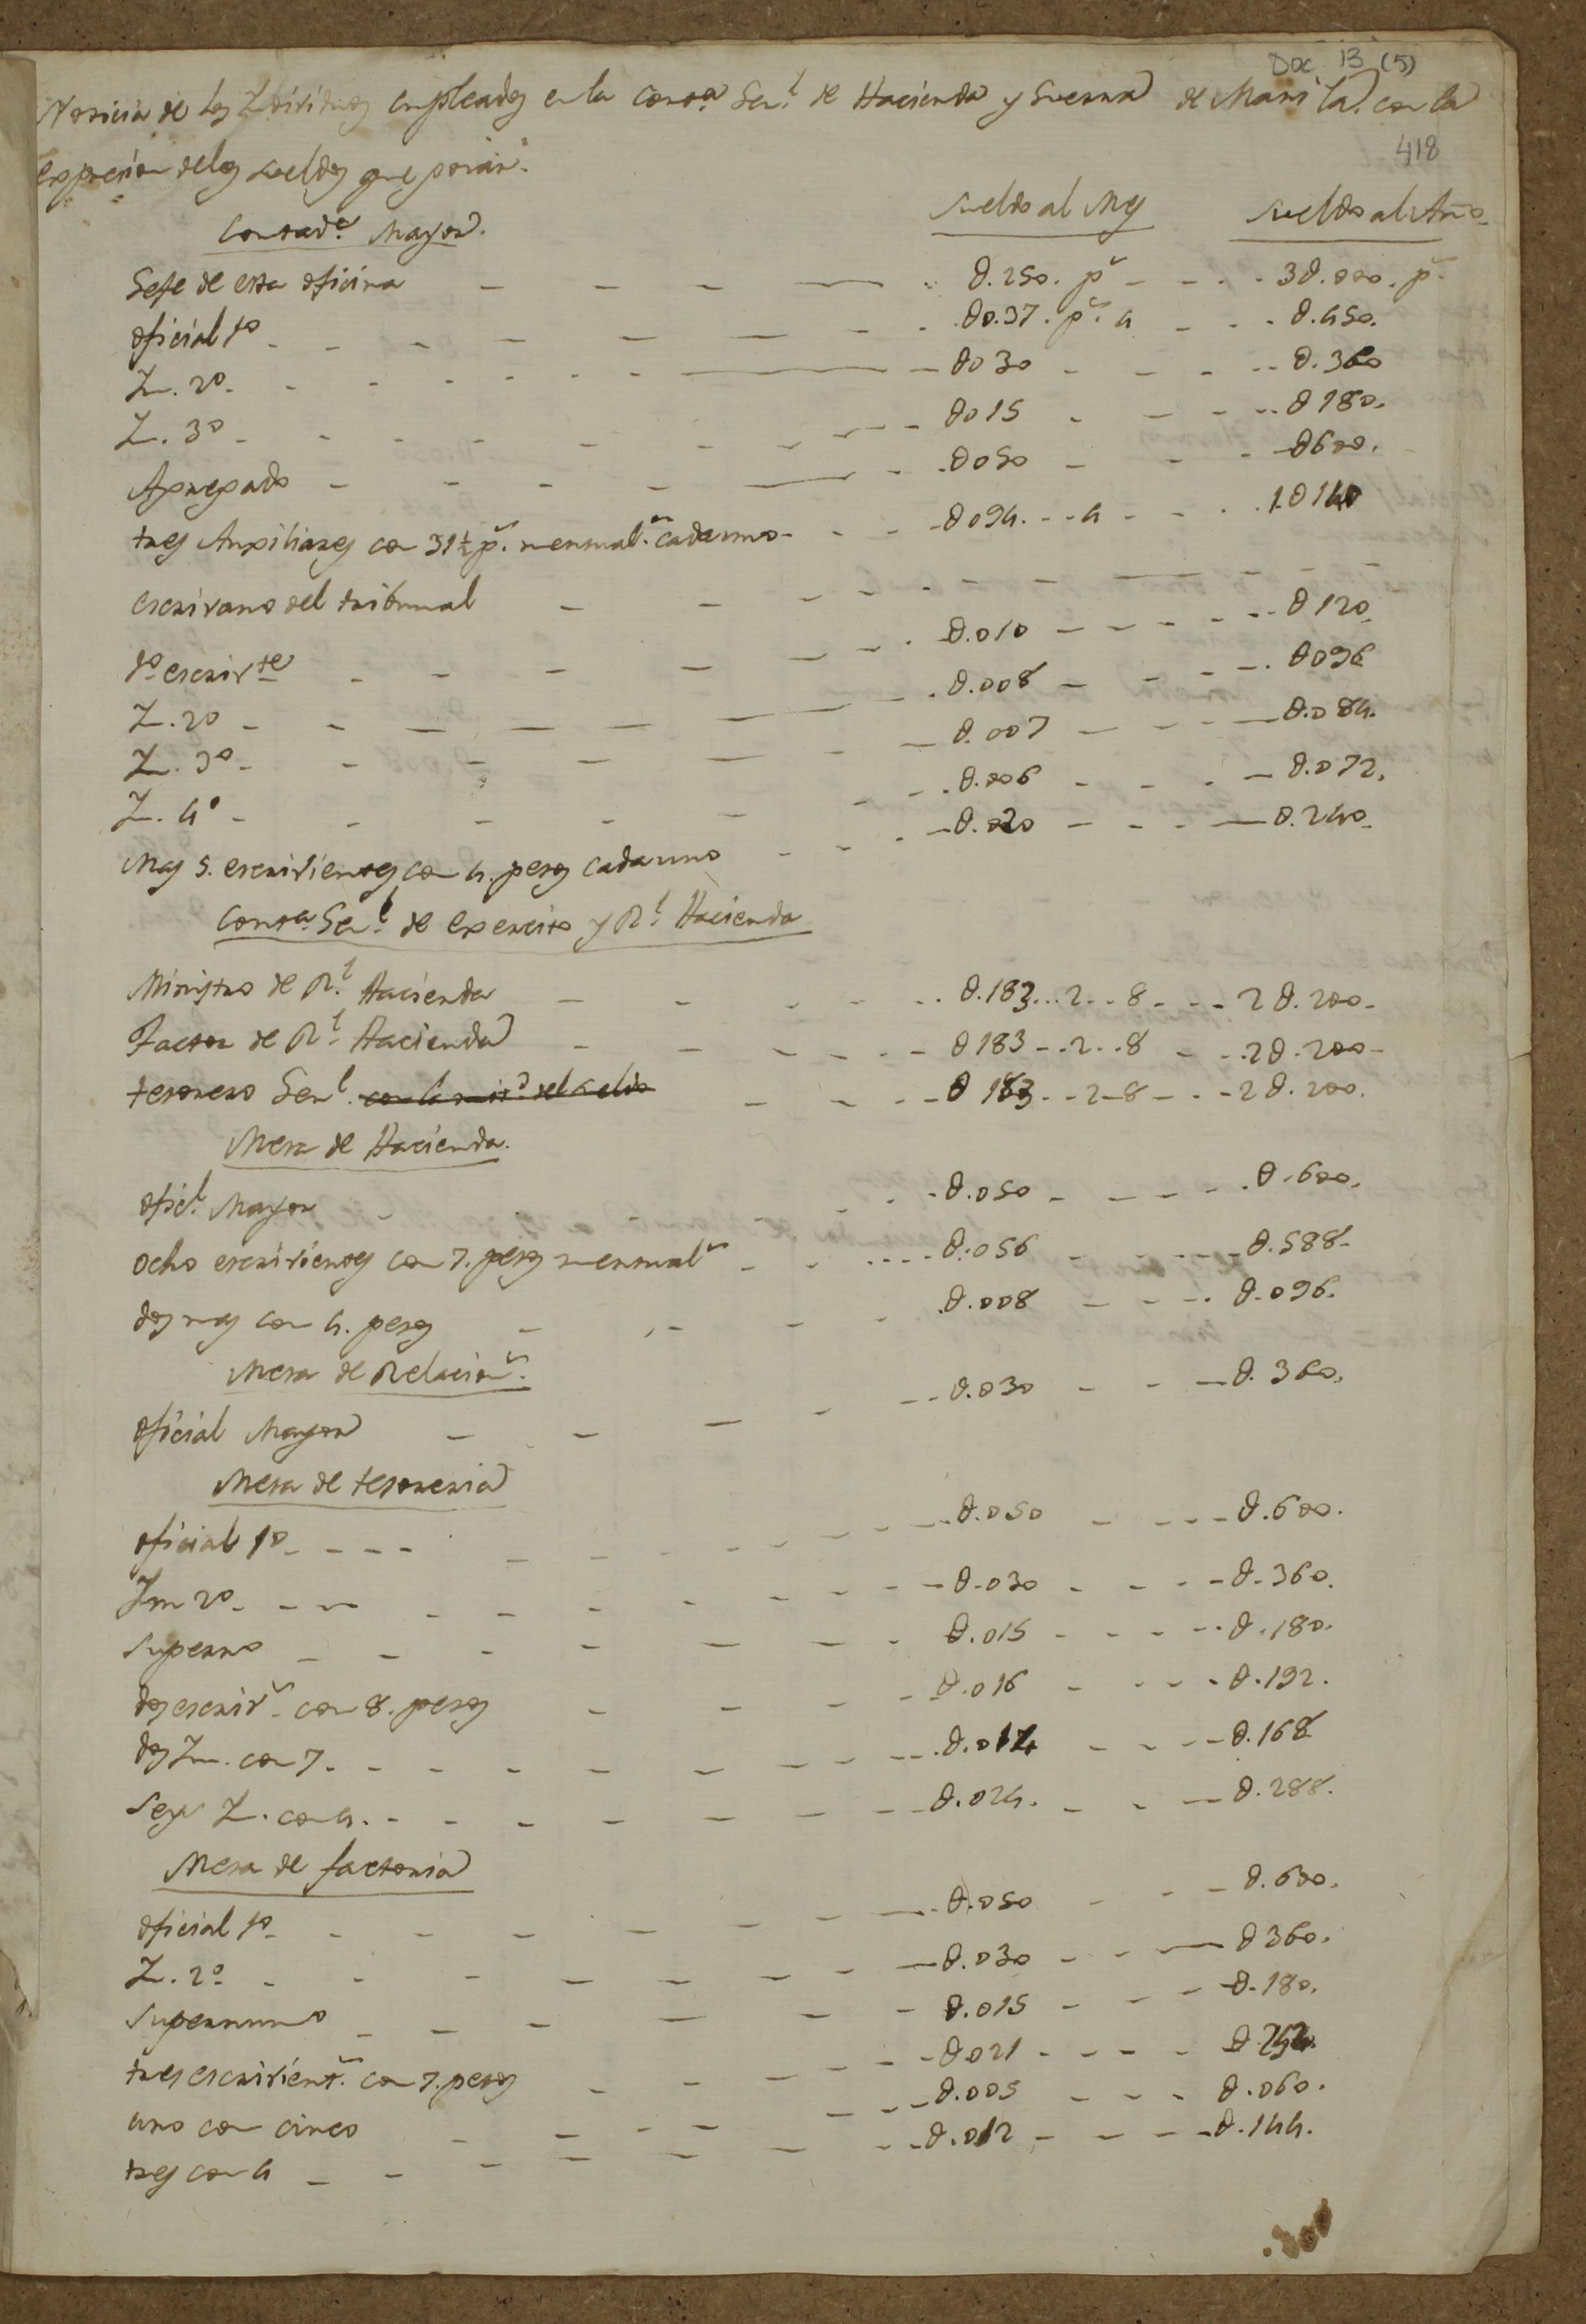 Doc. 13 (5)
Noticia de los Individuos empleados en la Conta Genl de Hacienda y Guerra de Manila. con la
418
expresion delos sueldos que gozan.
Contada Mayor. Sueldo al Mes Sueldo al Año
Gefe de esta oficina - - - - 0.250. ps - - - 3 0.000. ps
oficial 1o - - - - - - 00.37. ps. 4 - - - 0.450.
Z. 2o - - - - - - 0030 - - - - 0.360
Z. 3o - - - - - - 0015 - - - - 0180.
Agregado - - - - - 0050 - - - 0600.
tres Auxiliares con 31½ ps. mensuals. cada uno - - - 0094. - - 4 - - - 1.0140
escrivano del tribunal - - - - - - - - - -
1o escrivte - - - - - - 0.010 - - - - - 0120.
Z. 2o - - - - - - 0.008 - - - - 0096
Z. 3o - - - - - - 0.007 - - - - 0.084.
Z. 4o - - - - - - 0.006 - - - - 0.072.
Mas 5. escrivientes con 4. pesos cada uno - - - 0.020 - - - 0.240.
Conta Genl de Exercito y Rl Hacienda
Ministro de Rl Hacienda - - - - 0.183...2..8 - - - 2 0.200.
Factor de Rl Hacienda - - - - 0183 - ..2..8 - - .20.200.
tesorero Genl. con la mitd del sueldo - - - 0 183 - - 2-8 - - - 2 0.200.
Mesa de Hacienda.
oficl Mayor - - - 0.050 - - - - 0.600.
ocho escrivientes con 7. pesos mensuals - - - - 0.056 - - - - 0.588.
dos mas con 4. pesos - - - - 0.008 - - - 0.096.
Mesa de Relacions.
oficial Mayor - - - - - 0.030 - - - 0.360.
Mesa de tesoreria
oficial 1o - - - - - - - - 0.050 - - - - 0.600.
Zm 2o - - - - - - - - 0.030 - - - - 0.360.
Superno - - - - - - - 0.015 - - - - 0.180.
dos escrivs con 8. pesos - - - - 0.016 - - - 0.192.
dos Zm. con 7. - - - - - - - 0.014 - - - - 0.168
Seys Z. con 4. - - - - - - - 0.024. - - - 0.288.
Mesa de factoria
oficial 1o - - - - - - - 0.050 - - - 0.600.
Z. 2o - - - - - - - 0.030 - - - 0360.
Supernumo - - - - - - - 0.015 - - - 0.180.
tres escrivients. con 7. pesos - - - - - 0021 - - - - 0.252.
uno con cinco - - - - - - 0.005 - - - 0.060.
tres con 4 - - - - - - - 0.012 - - - 0.144.